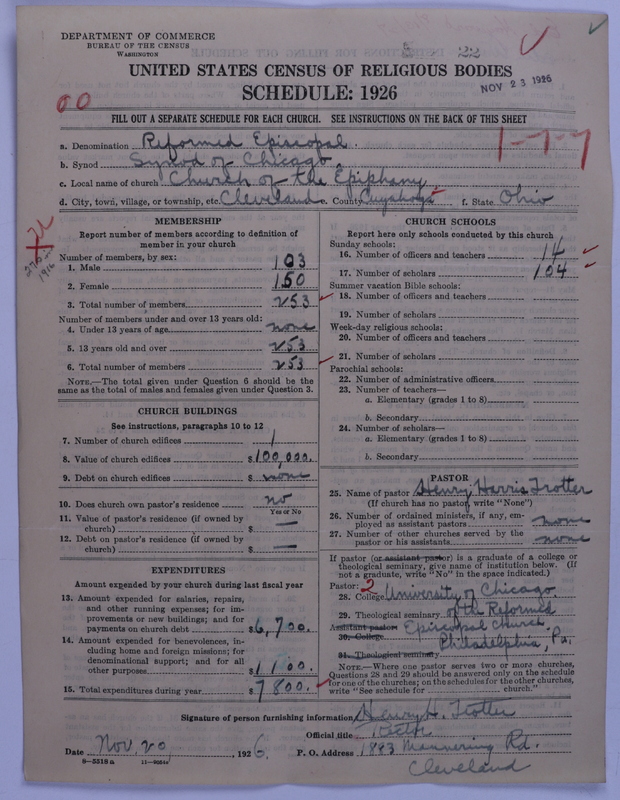 DEPARTMENT OF COMMERCE
BUREAU OF THE CENSUS
WASHINGTON
22
UNITED STATES CENSUS OF RELIGIOUS BODIES
SCHEDULE: 1926
NOV 23 1926
00
FILL OUT A SEPARATE SCHEDULE FOR EACH CHURCH. SEE INSTRUCTIONS ON THE BACK OF THIS SHEET
1-7-7
a. Denomination Reformed Episcopal.
b. Synod Synod of Chicago.
c. Local name of church Church of the Epiphany
d. City, town, village, or township, etc. Cleveland e. County Cuyahoga f. State Ohio
MEMBERSHIP
Report number of members according to definition of
member in your church
Number of members, by sex:
1. Male 103
2. Female 150
3. Total number of members 253
Number of members under and over 13 years old:
4. Under 13 years of age none
5. 13 years old and over 253
6. Total number of members 253
NOTE.—The total given under Question 6 should be the
same as the total of males and females given under Question 3.
1916
CHURCH BUILDINGS
See instructions, paragraphs 10 to 12
7. Number of church edifices 1
8. Value of church edifices $100,000.
9. Debt on church edifices $ none
10. Does church own pastor's residence no
Yes or No
11. Value of pastor's residence (if owned by
church) $ —
12. Debt on pastor's residence (if owned by
church) $ —
EXPENDITURES
Amount expended by your church during last fiscal year
13. Amount expended for salaries, repairs,
and other running expenses; for im-
provements or new buildings; and for
payments on church debt $6,700.
14. Amount expended for benevolences, in-
cluding home and foreign missions; for
denominational support; and for all
other purposes $1100.
15. Total expenditures during year $7800.
CHURCH SCHOOLS
Report here only schools conducted by this church
Sunday schools:
16. Number of officers and teachers 14
17. Number of scholars 104
Summer vacation Bible schools:
18. Number of officers and teachers
19. Number of scholars
Week-day religious schools:
20. Number of officers and teachers
21. Number of scholars
Parochial schools:
22. Number of administrative officers
23. Number of teachers—
a. Elementary (grades 1 to 8)
b. Secondary
24. Number of scholars—
a. Elementary (grades 1 to 8)
b. Secondary
PASTOR
25. Name of pastor Henry Harris Trotter
(If church has no pastor, write "None")
26. Number of ordained ministers, if any, em-
ployed as assistant pastors none
27. Number of other churches served by the
pastor or his assistants none
If pastor (or assistant pastor) is a graduate of a college or
theological seminary, give name of institution below. (If
not a graduate, write "No" in the space indicated.)
Pastor: 2
28. College University of Chicago
29. Theological seminary of the Reformed
Assistant pastor: Episcopal Church.
30. College Philadelphia, Pa.
31. Theological seminary
NOTE.—Where one pastor serves two or more churches,
Questions 28 and 29 should be answered only on the schedule
for one of the churches; on the schedules for the other churches,
write "See schedule for church."
Signature of person furnishing information Henry H. Trotter
Official title Rector
Date Nov. 20, 1926. P. O. Address 1883 Mannering Rd.
Cleveland
8—5518a